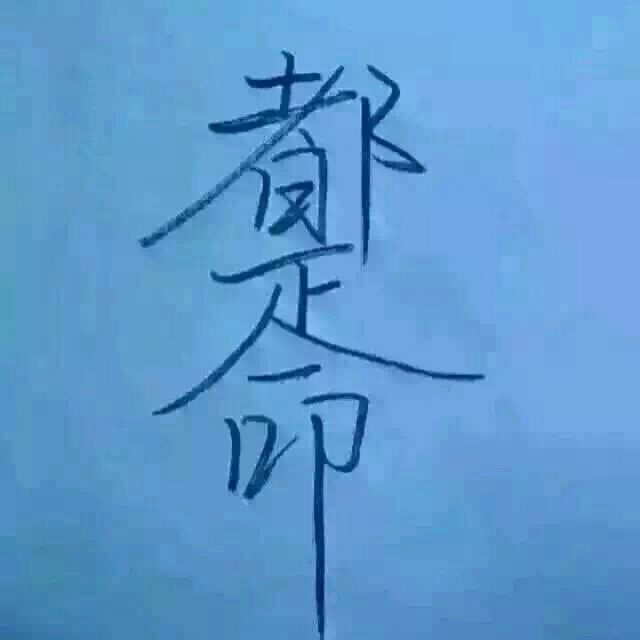 都是命